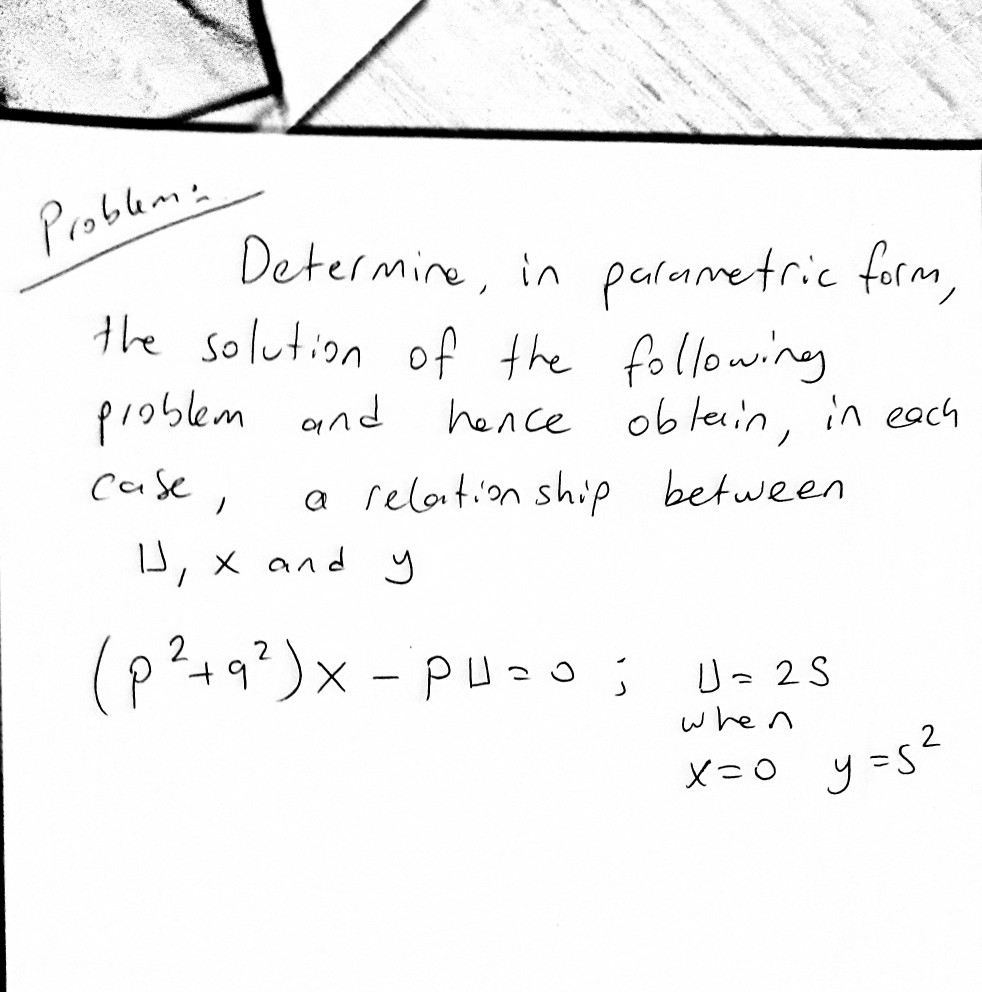 Problem:
Determine, in parametric form,
the solution of the following
problem and hence obtain, in each
case, a relationship between
U, x and y
(p²+q²)x - pU = 0 ; U = 2S
when
x=0 y=S²